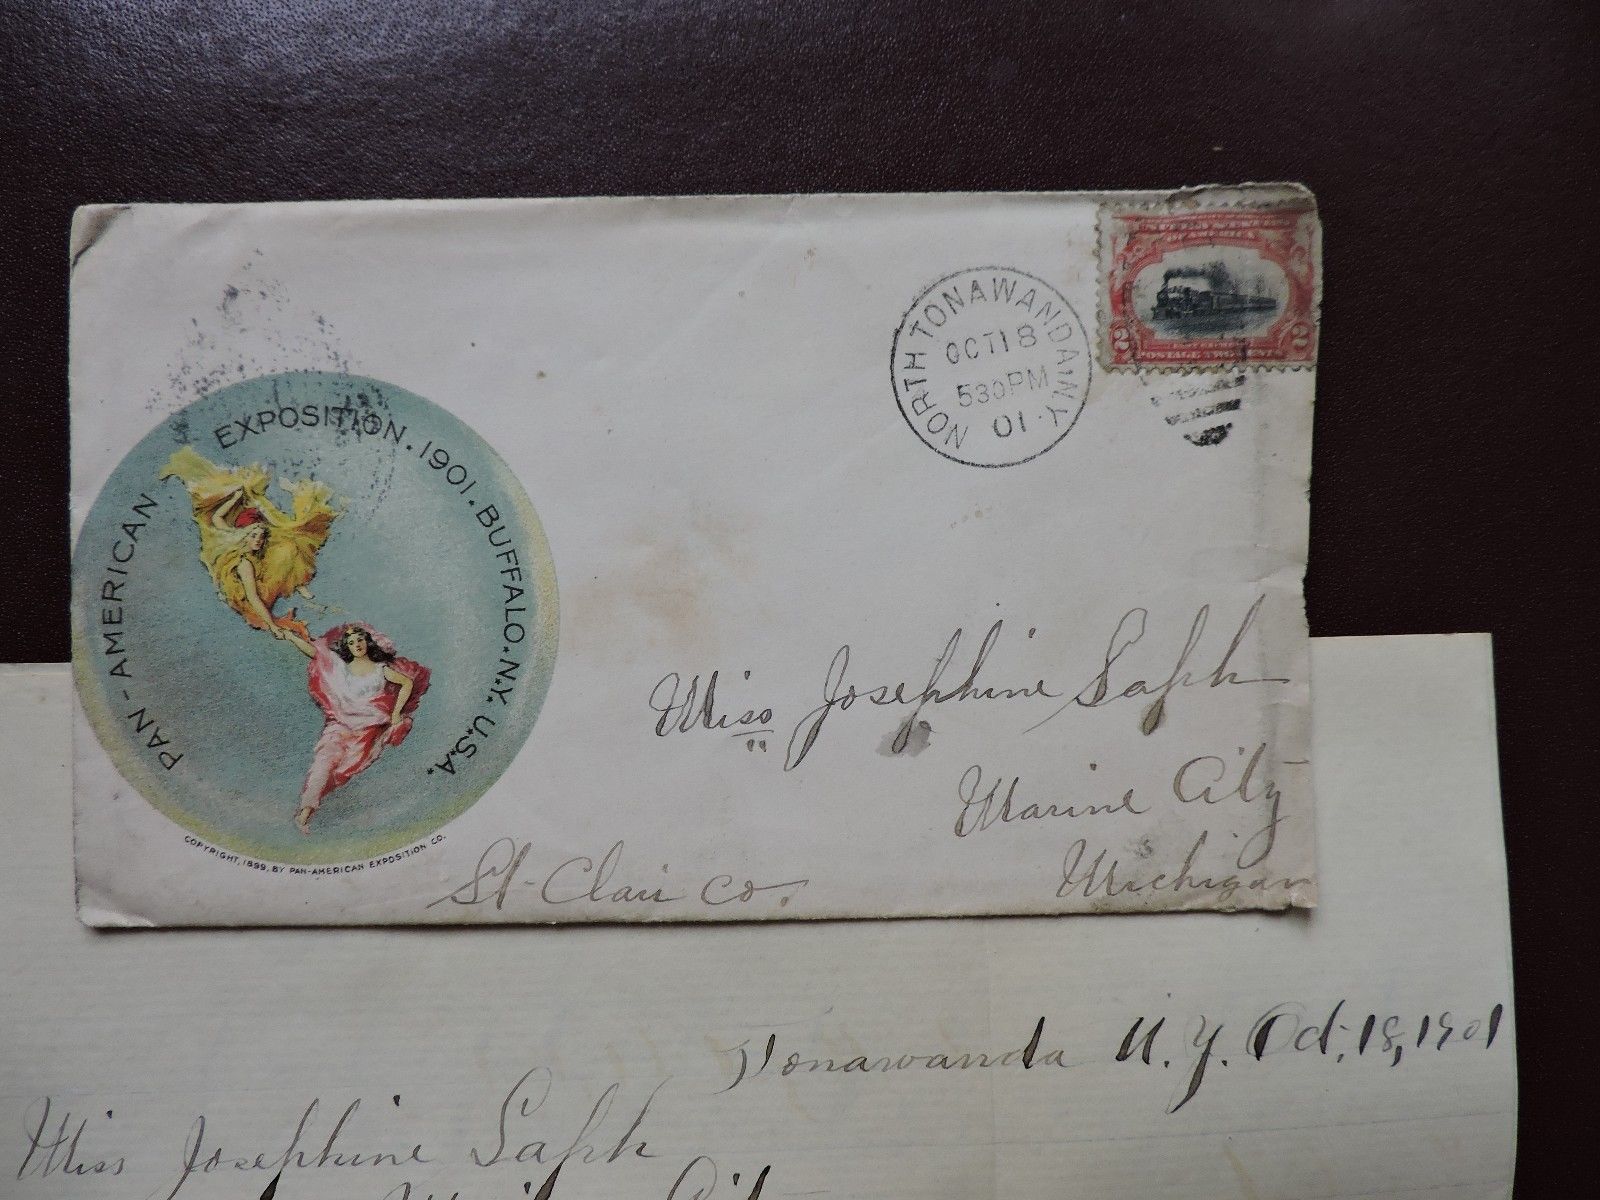 PAN-AMERICAN EXPOSITION. 1901. BUFFALO. N.Y. U.S.A.
COPYRIGHT, 1899, BY PAN-AMERICAN EXPOSITION CO.
NORTH TONAWANDA, N.Y.
OCT 18
530 PM
01
OF AMERICA
2 2
POSTAGE TWO CENTS
Miss Josephine Saph
Marine City
Michigan
St. Clair Co.
Tonawanda N.Y. Oct. 18, 1901
Miss Josephine Saph